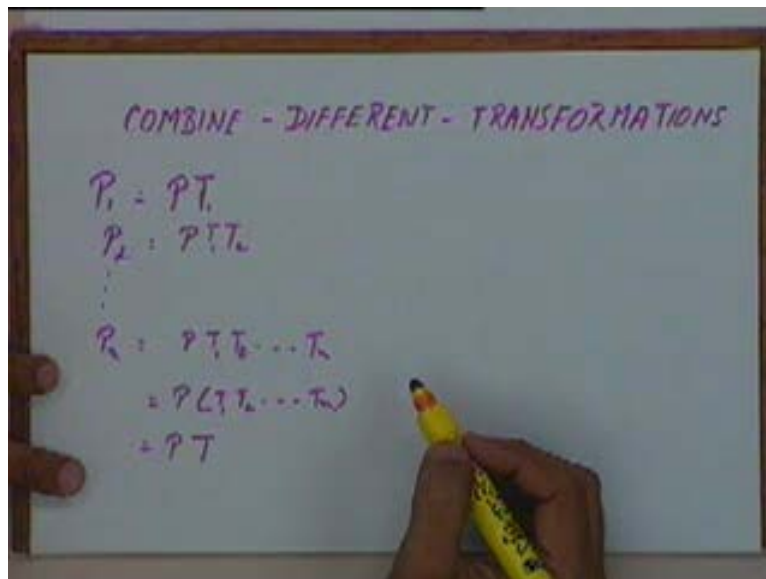 COMBINE - DIFFERENT - TRANSFORMATIONS
P₁ = PT₁
P₂ = PT₁T₂
⋮
Pₙ = PT₁T₂...Tₙ
= P(T₁T₂...Tₙ)
= PT